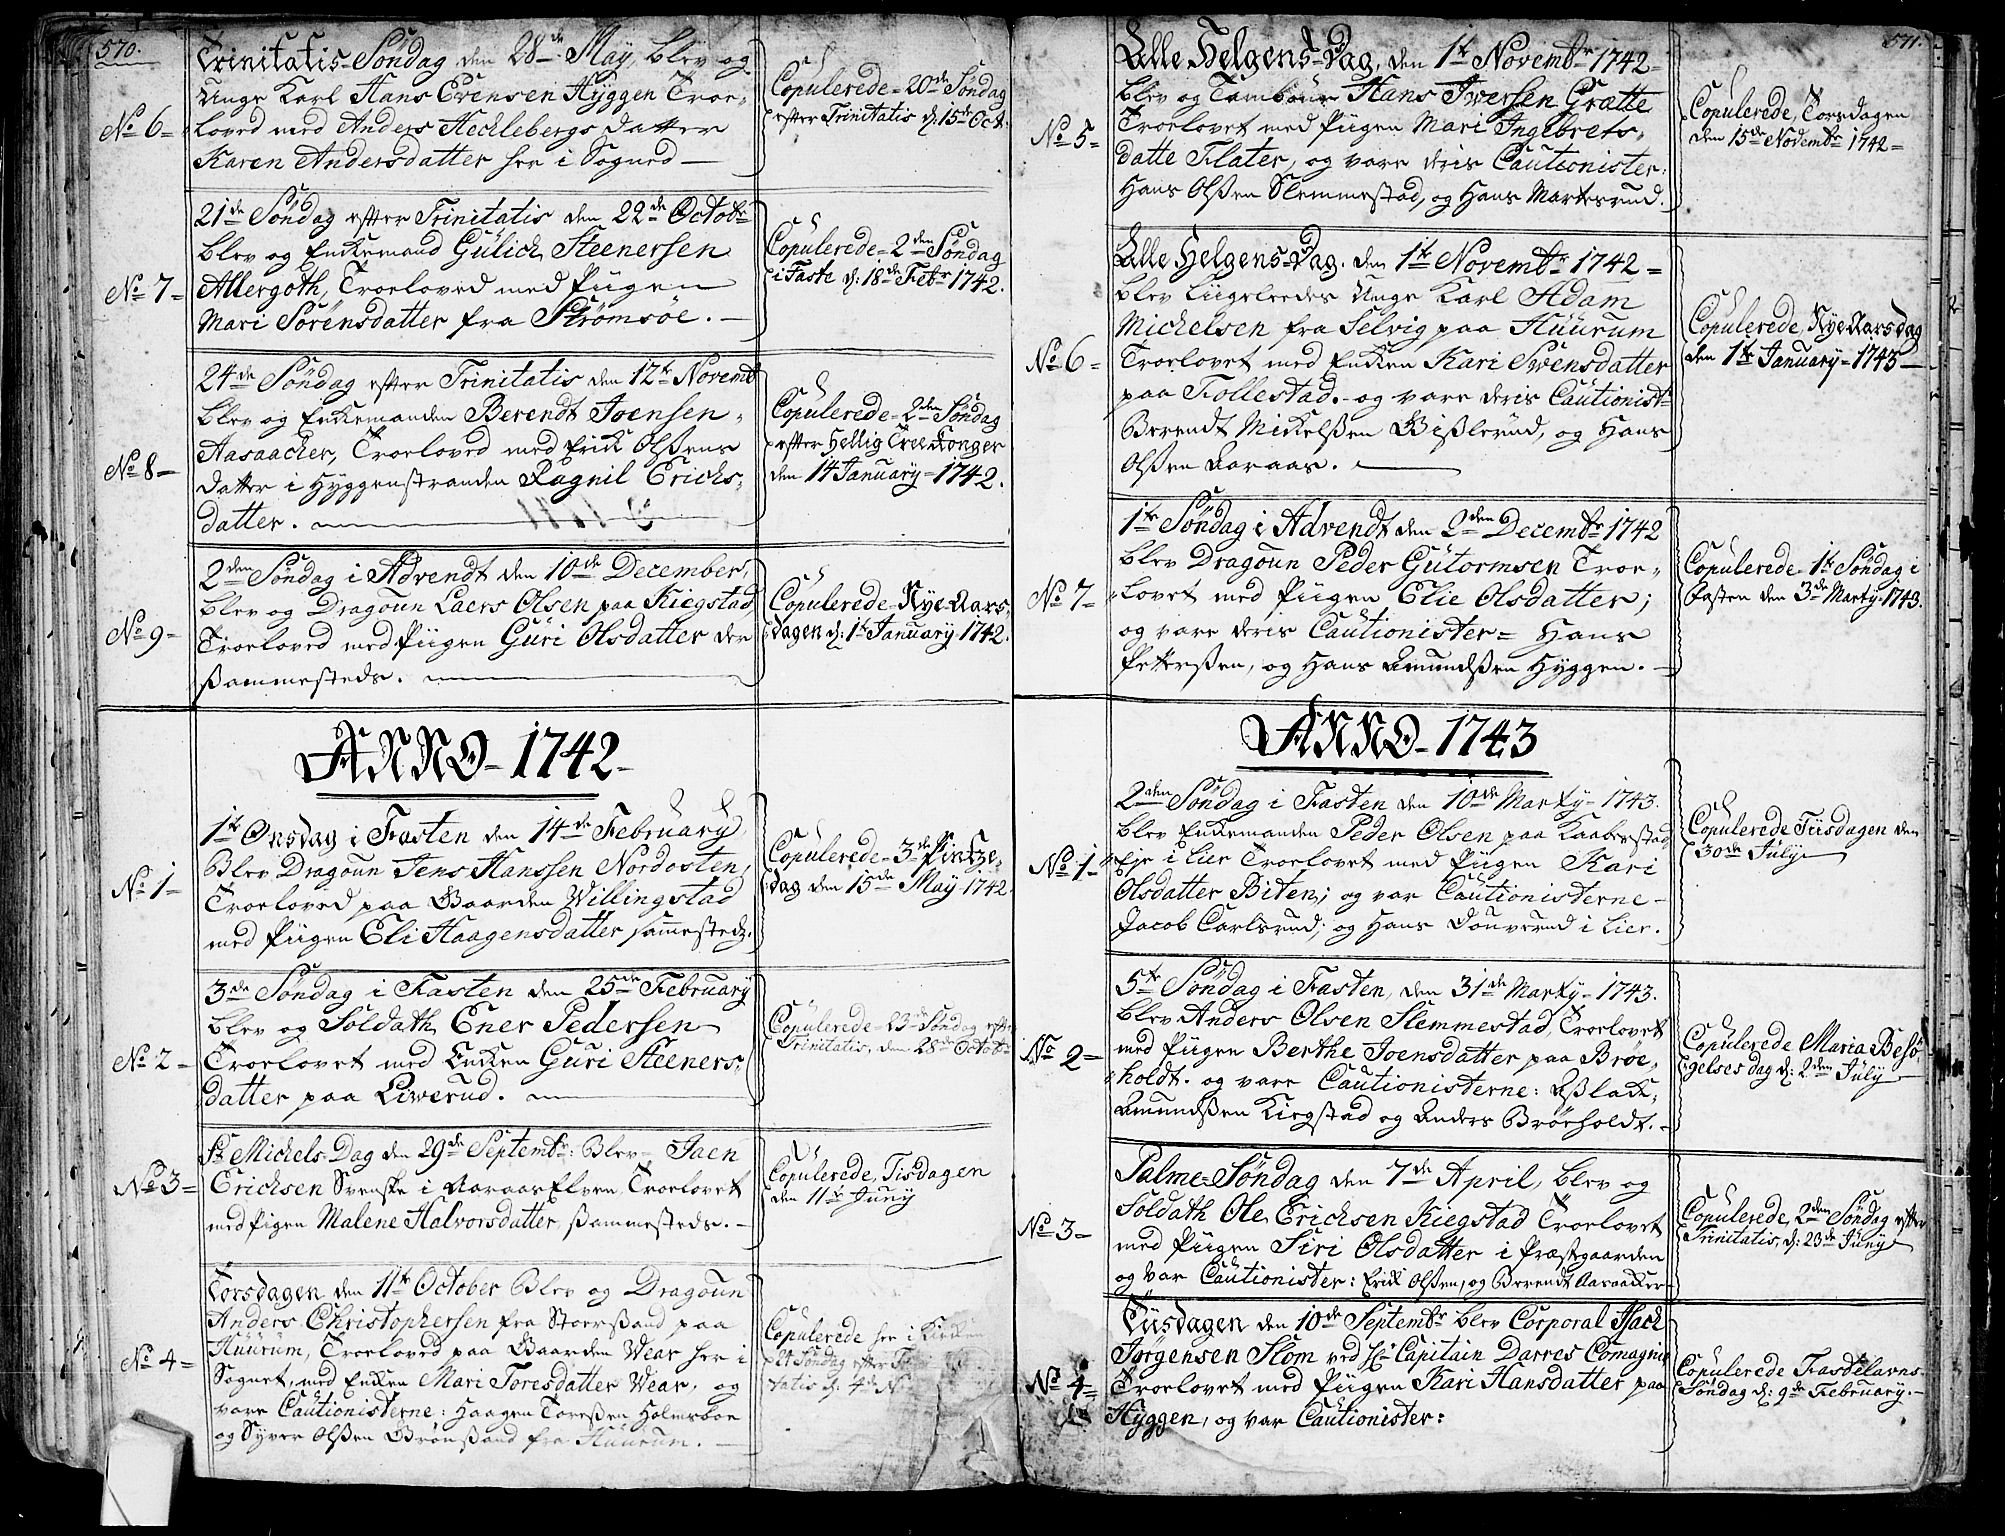 570.
No 6 =
Trinitatis-Söndag den 28de May, blev og
Unge Karl Hans Evensen Hyggen Troe-
loved med Anders Hecklebergs datter
Karen Andersdatter her i Sogned —
Copulerede = 20de Söndag
efter Trinitatis d: 15de Oct.
No 7 =
21de Söndag efter Trinitatis den 22de Octobr
blev og Enkemand Gülich Steenersen
Allergoth, Troeloved med Piigen
Mari Sörensdatter fra Strömsöe. —
Copulerede = 2den Söndag
i Faste d: 18de Febr 1742.
No 8 =
24de Söndag efter Trinitatis den 12te Novemb
blev og Enkemanden Berendt Joensen
Aasaacher, Troeloved med Erick Olssens
datter i Hyggenstranden Ragnil Erichs-
datter.
Copulerede = 2den Söndag
efter Hellig Tree Konger
den 14 January = 1742.
No 9 =
2den Söndag i Advendt den 10de December,
blev og Dragoun Laers Olsen paa Kiegstad
Troeloved med Piigen Güri Olsdatter der
sammesteds.
Copulerede = Nye Aars-
dagen d: 1te January 1742.
ANNO - 1742 -
No 1 =
1te Onsdag i Fasten den 14de February
Blev Dragoun Jens Hanssen Nordosten,
Troeloved paa Gaarden Willingstad
med Piigen Eli Haagensdatter sammesteds.
Copulerede = 3de Pintze-
dag den 15de May 1742.
No 2 =
3de Söndag i Fasten den 25de February
blev og Soldath Ener Pedersen
Troelovet med Enken Guri Steeners-
datter paa Liverud.
Copulerede = 23de Söndag efter
Trinitatis, den 28de Octobr
No 3 =
St Michels Dag den 29de Septembr: Blev Jaen
Erichsen Svenske i Aaraas Elven, Troelovet
med Pigen Malene Halvorsdatter, sammesteds. —
Copulerede, Tisdagen
den 11te Juny
No 4 =
Torsdagen den 11te October Blev og Dragoun
Anders Christophersen fra Storsand paa
Huurum, Troeloved paa Gaarden Wear her i
Sognet, med Enken Mari Toresdatter Wear, og
vare Cautionisterne: Haagen Toressen Holmsboe
og Syver Olssen Brönsand fra Huurum. —
Copulerede her i Kirken
24 Söndag efter
tatis d: 4de N
571.
No 5 =
Alle Helgens-Dag, den 1te Novembr 1742 =
blev og Tambour Hans Iversen Gratte
Troelovet med Piigen Mari Ingebrets-
datte Klater, og vare deris Cautionister:
Hans Olssen Slemmestad, og Hans Martesrud.
Copulerede, Torsdagen
den 15de Novembr 1742 =
No 6 =
Alle Helgens-Dag. den 1te Novembr 1742 =
blev Liigeledes Unge Karl Adam
Michelsen fra Selvig paa Huurum
Troelovet med Enken Kari Svensdatter
paa Follestad. og vare deris Cautionist-
Berendt Mickelssen Bislerud, og Hans
Olssen Aaraas.
Copulerede, Nye Aarsdag
den 1te January = 1743 —
No 7 =
1te Söndag i Advendt den 2den Decembr 1742
blev Dragoun Peder Gutormsen Troe-
lovet med Piigen Elie Olsdatter;
og vare deris Cautionister = Hans
Petterssen, og Hans Amundssen Hyggen. —
Copulerede = 1te Söndag i
Fasten den 3de Marty. 1743.
ANNO - 1743
No 1 =
2den Söndag i Fasten den 10de Marty = 1743.
blev Enkemanden Peder Olsen paa Kaaberstad
Eje i Lier Troelovet med Piigen Kari
Olsdatter Biten; og var Cautionisterne -
Jacob Carlsrud; og Hans Douverud i Lier.
Copulerede Tiisdagen den
30de July
No 2 =
5te Söndag i Fasten, den 31de Marty = 1743.
blev Anders Olsen Slemmestad, Troelovet
med Piigen Berthe Joensdatter paa Bröe-
holdt. og vare Cautionisterne: Asslack
Amundssen Kirgstad og Anders Bröeholdt. —
Copulerede Maria Besö-
gelses dag d: 2den July
No 3 =
Palme-Söndag den 7de April, blev og
Soldath Ole Erichsen Kiegstad Troelovet
med Piigen Siri Olsdatter i Præstgaarden
og var Cautionister: Erick Olssen, og Berendt Aasaacker-
Copulerede, 2den Söndag efter
Trinitatis, d: 23de Juny
No 4 =
Tiisdagen den 10de Septembr blev Corporal Isach
Jörgensen Slom ved Capitain Darres Comagnie
Troelovet med Piigen Kari Hansdatter paa
Hyggen, og var Cautionister:
Copulerede Fastelavns-
Söndag d: 9de February. —